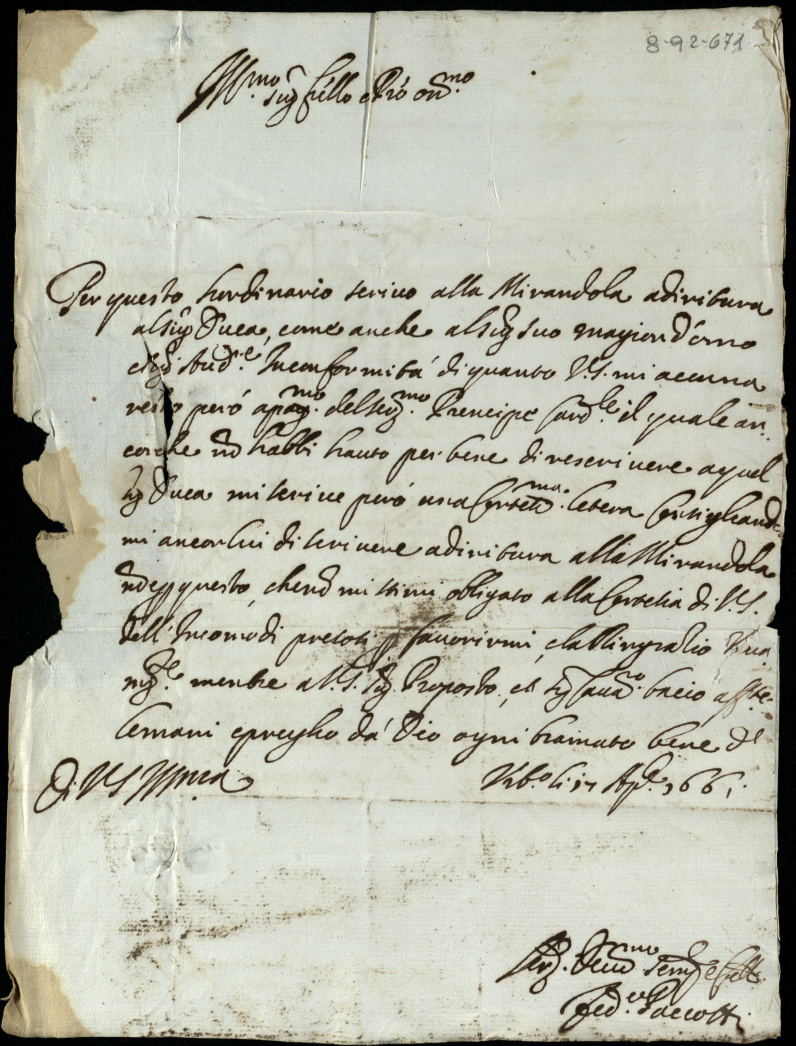 8-92-671
Ill.mo sig.r f.ello e P.rò oss.mo
Per questo hordinario scrivo alla Mirandola adiritura
al sig.r Duca, come anche al sig.r suo magior d'omo
Inconformità di quanto V.S. mi accena
resto però del ser.mo Prencipe Card.le il quale an-
corche nō habbi hauto per bene di rescrivere a quel
sig.r Duca mi scrive però una Cortes.ma letera Consigliando-
mi ancor lui di scrivere adiritura alla Mirandola
nō è p questo, che nō mi stimi obligato alla Cortesia di V.S.
dell'Incomodi presosi p favorirmi, e la Ringratio viva
m.te mentre a V.S. sig.r Proposto, et sig.r Cava.ro bacio aff.te
le mani e prego da Dio ogni bramato bene
Di V.S. Ill.ma
li 17 Ap.le 1661
Ser. Dev.mo
Fed.co Paciotti